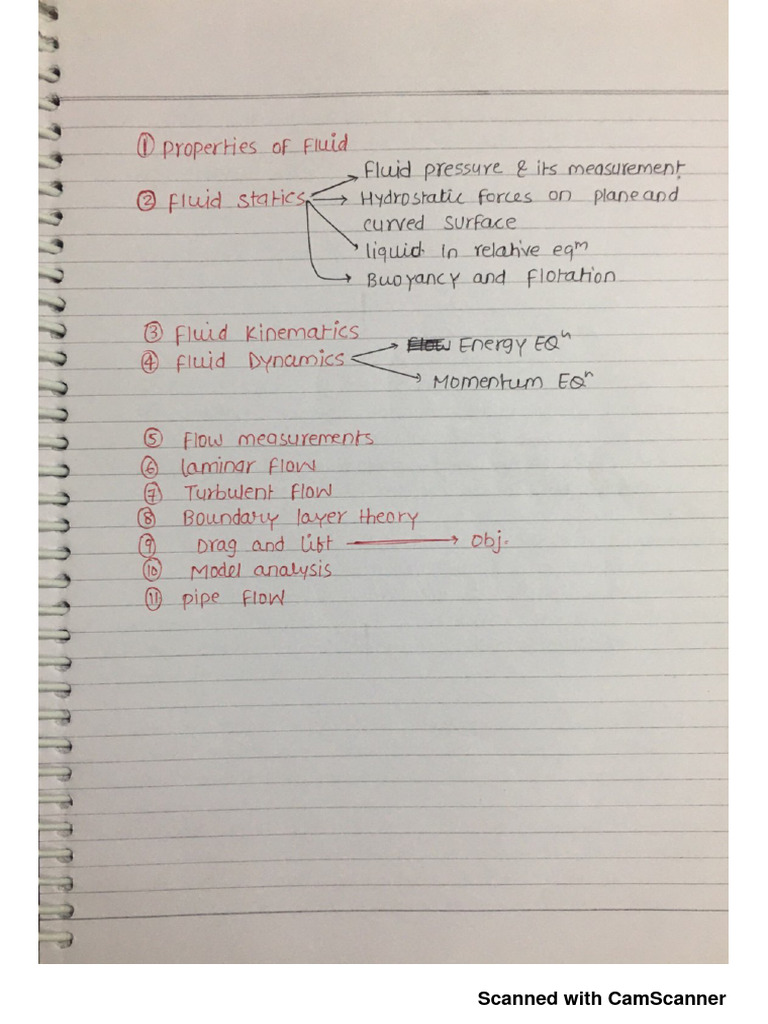 ① Properties of Fluid
Fluid pressure & its measurement.
② Fluid Statics
Hydrostatic forces on plane and
curved surface
liquid in relative eqᵐ
Buoyancy and flotation
③ Fluid Kinematics
④ Fluid Dynamics
Energy EQⁿ
Momentum EQⁿ
⑤ Flow measurements
⑥ laminar flow
⑦ Turbulent flow
⑧ Boundary layer theory
⑨ Drag and lift → obj.
⑩ Model analysis
⑪ pipe flow
Scanned with CamScanner